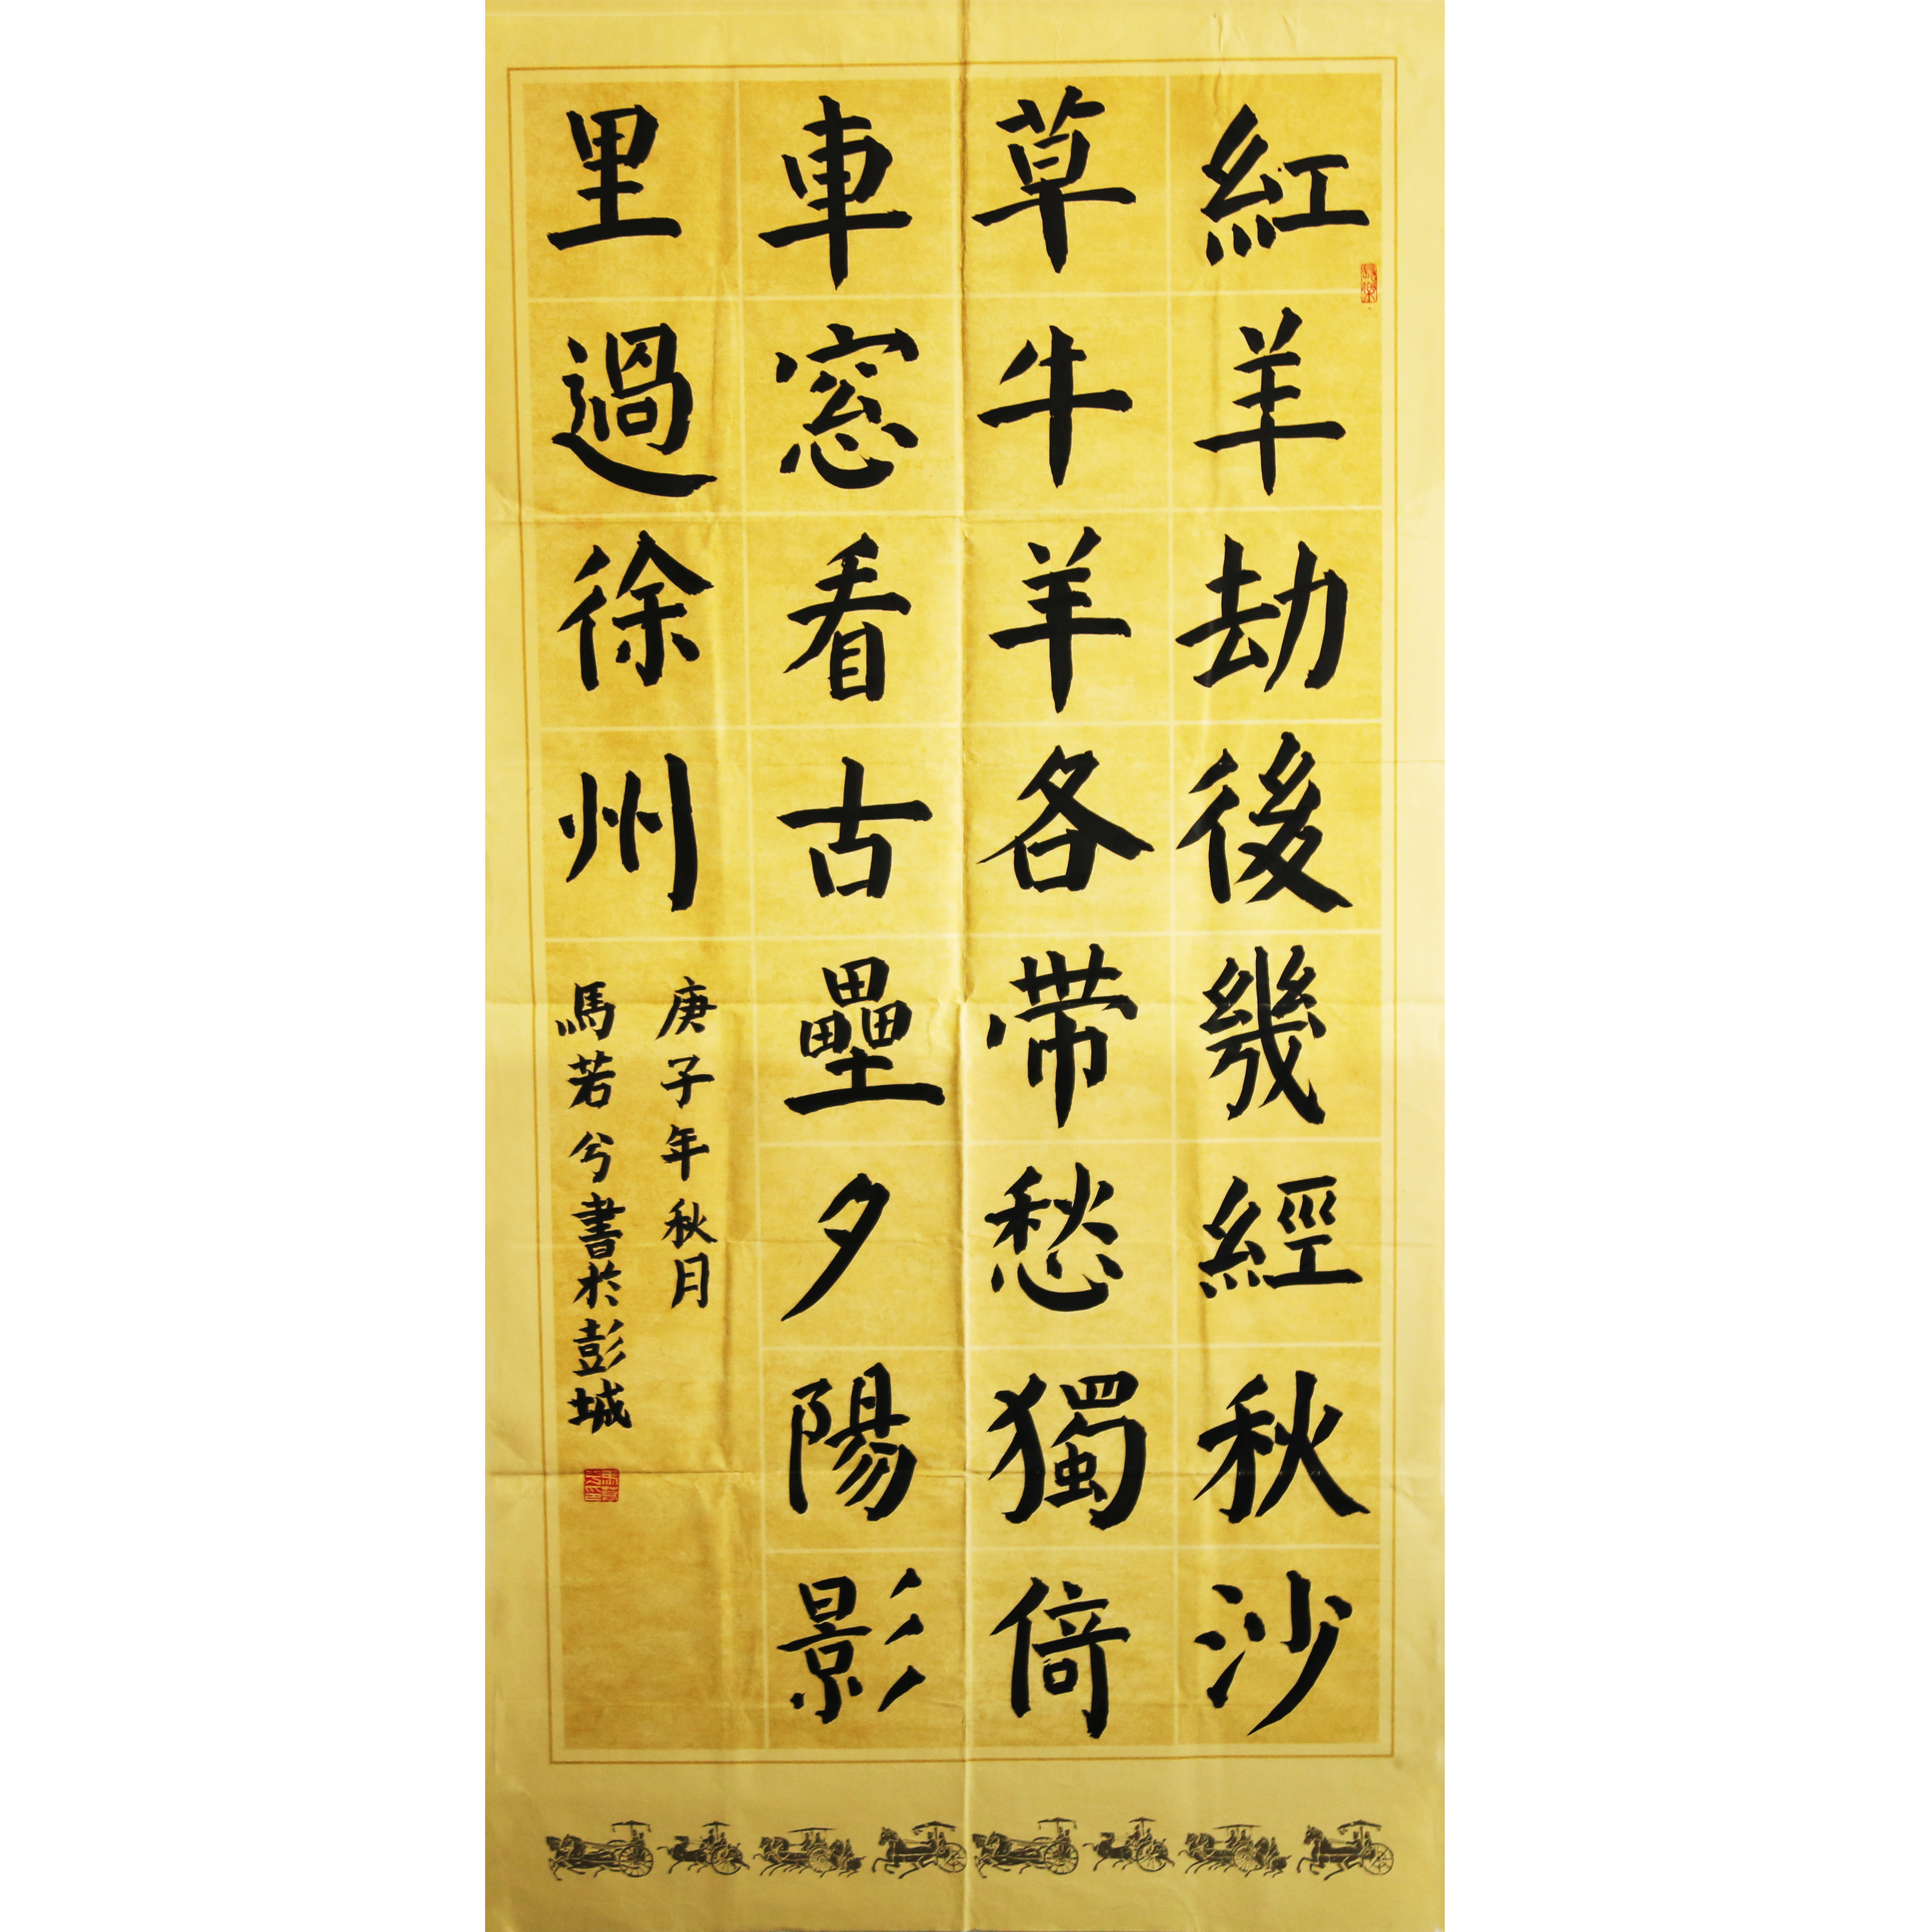 紅羊劫後幾經秋沙
草牛羊各帶愁獨倚
車窓看古壘夕陽影
里過徐州
庚子年秋月
馬若兮書於彭城